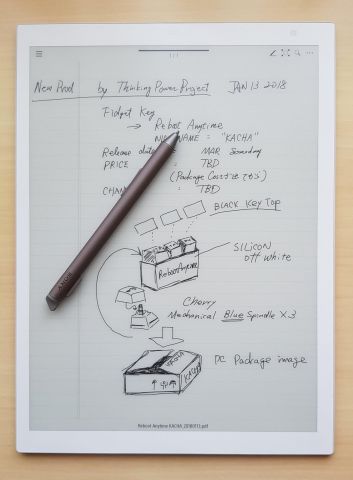 1/1
New Prod by Thinking Power Project JAN 13 2018
Fidget Key
→ Reboot Anytime
NAME = "KACHA"
Release date MAR Someday
PRICE : TBD
(Package Cost
CHAN : TBD
BLACK Key Top
SILICON
off White
RebootAnytime
Cherry
Mechanical Blue Spindle X3
KACHA
PC Package image
KACHA
UP
Reboot Anytime KACHA_20180113.pdf